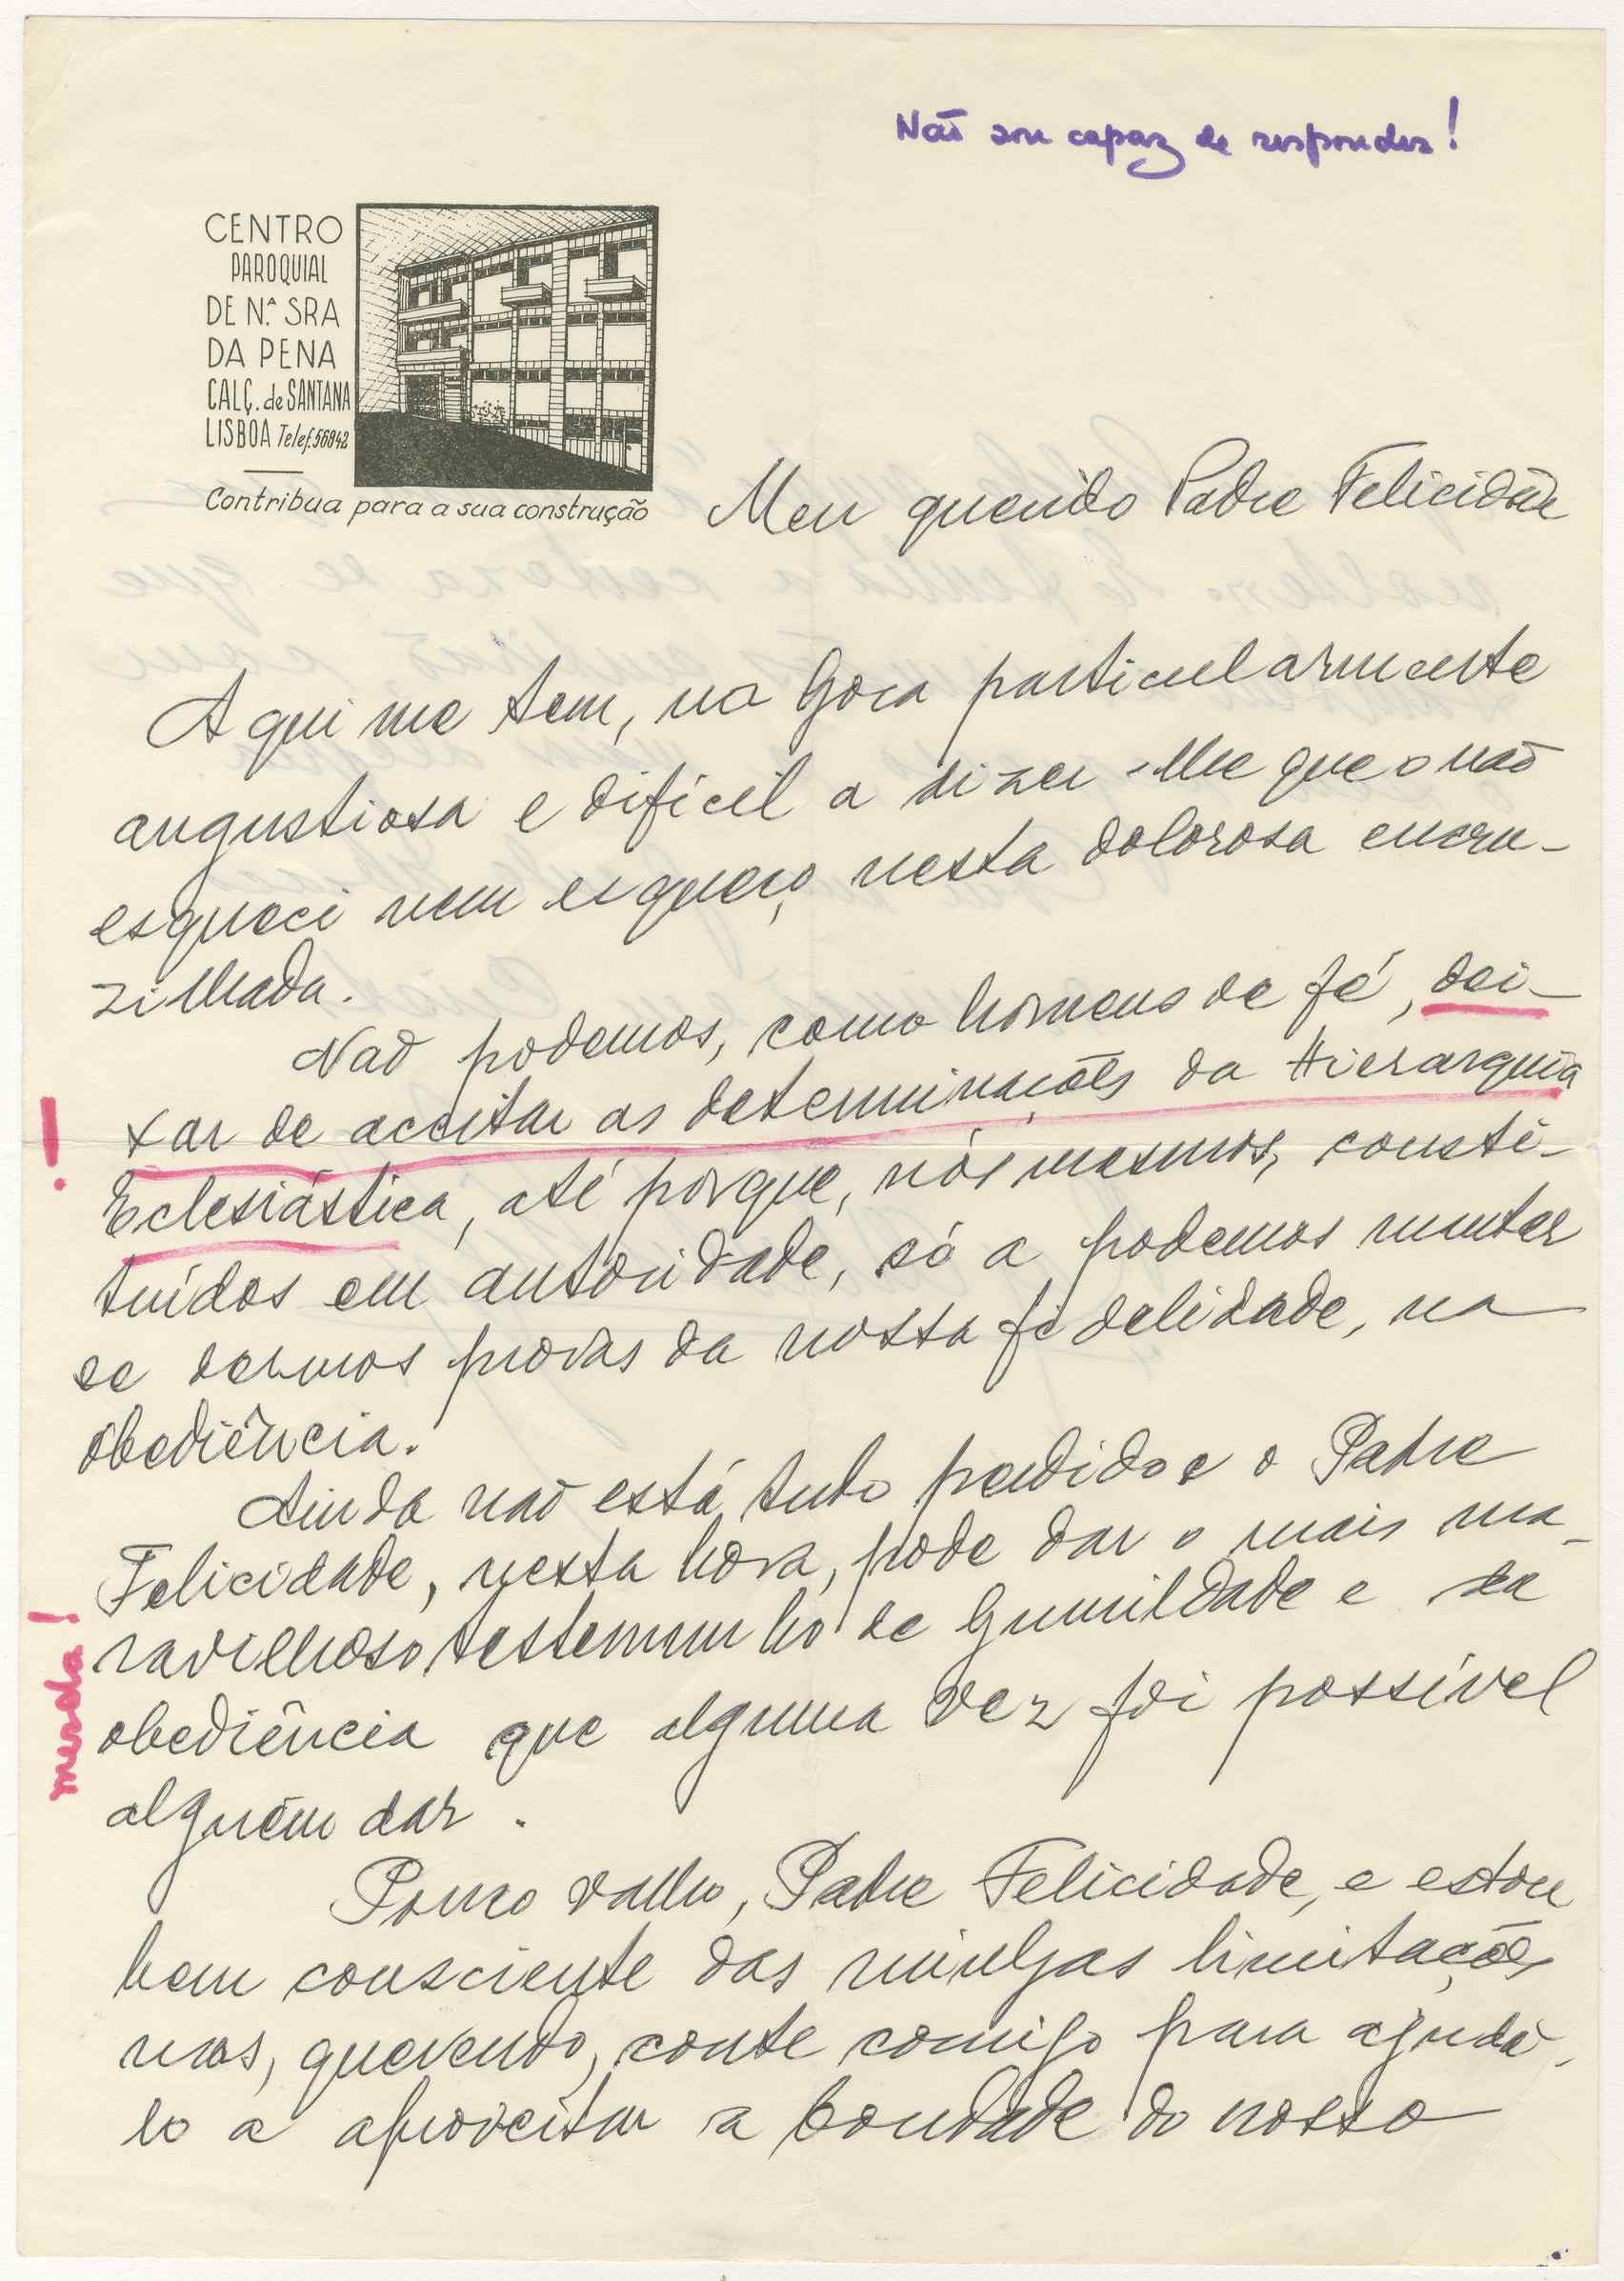 Não sou capaz de responder!
CENTRO
PAROQUIAL
DE N.ª SRA
DA PENA
CALÇ. de SANTANA
LISBOA Telef. 56842
Contribua para a sua construção
Meu querido Padre Felicidade
Aqui me tem, na hora particularmente
angustiosa e difícil a dizer-lhe que o não
esqueci nem esqueço, nesta dolorosa encru-
zilhada.
Não podemos, como homens de fé, dei-
xar de aceitar as determinações da Hierarquia
Eclesiástica, até porque, nós mesmos, consti-
tuídos em autoridade, só a podemos manter
se dermos provas da nossa fidelidade, na
obediência.
!
Ainda não está tudo perdido e o Padre
Felicidade, nesta hora, pode dar o mais ma-
ravilhoso testemunho de humildade e de
obediência que alguma vez foi possível
alguém dar.
merda!
Pouco valho, Padre Felicidade, e estou
bem consciente das minhas limitações
mas, querendo, conte comigo para ajudá-
lo a aproveitar a bondade do nosso